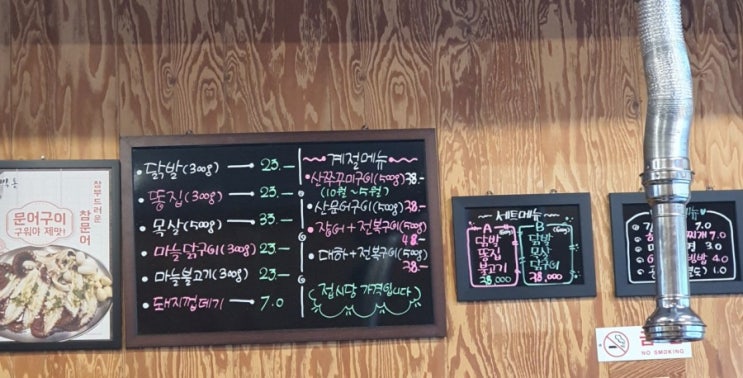 참부드러운
참문어
문어구이
구워야 제맛!
• 닭발(300g) → 23.-
• 똥집(300g) → 23.-
• 목살(500g) → 33.-
• 마늘닭구이(300g) 23.-
• 마늘불고기(300g) 23.-
• 돼지껍데기 → 7.0
계절메뉴
산쭈꾸미구이(500g) 38.-
(10월~5월)
산문어구이(500g)
장어+전복구이(500g)
48.-
대하+전복구이(500g)
접시당 가격입니다
세트메뉴
A
닭발
똥집
불고기
B
닭발
목살
닭구이
38,000
뉴
7.0
찌개 7.0
3.0
빔밥 4.0
1.0
NO SMOKING